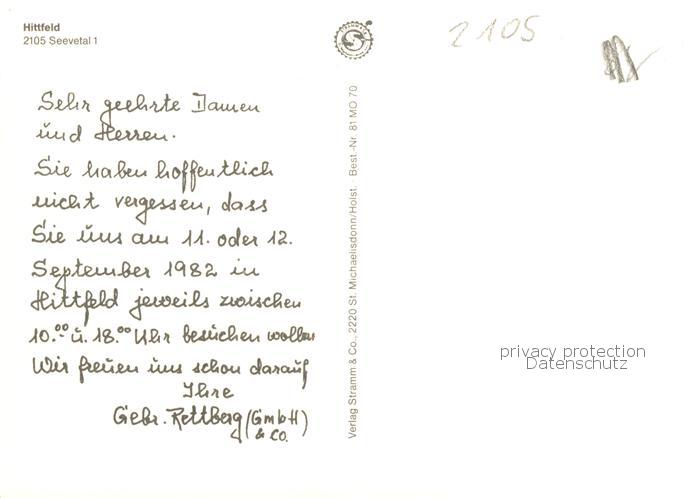 Hittfeld
2105 Seevetal 1
2105
Sehr geehrte Damen
und Herren.
Sie haben hoffentlich
nicht vergessen, dass
Sie uns am 11. oder 12.
September 1982 in
Hittfeld jeweils zwischen
10.00 u. 18.00 Uhr besuchen wollen
Wir freuen uns schon darauf
Ihre
Gebr. Rettberg (GmbH)
& Co.
Verlag Stramm & Co., 2220 St. Michaelisdonn/Holst. Best.-Nr. 81 MO 70
privacy protection
Datenschutz